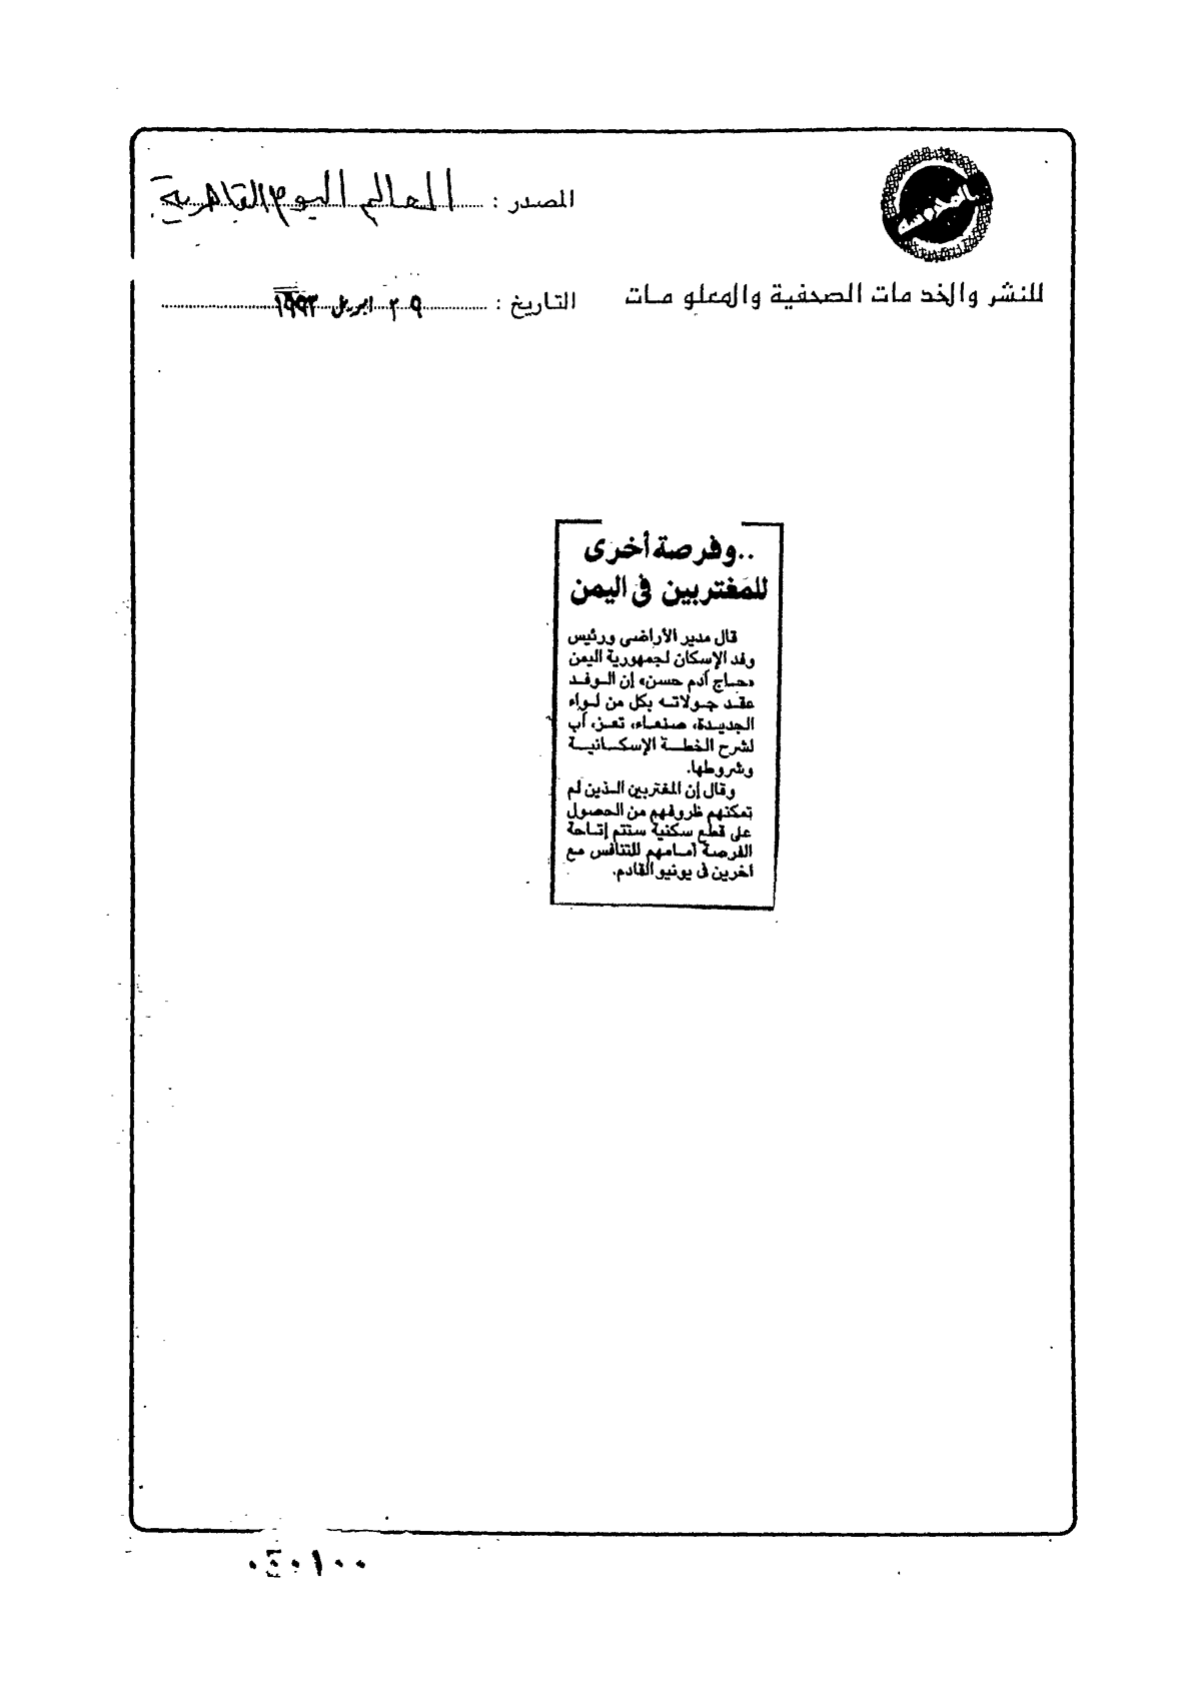 المصدر : العالم اليوم القاهرية
للنشر والخدمات الصحفية والمعلومات
التاريخ : ٢٩ ابريل ١٩٩٣
..وفرصة أخرى
للمغتربين فى اليمن
قال مدير الأراضى ورئيس
وفد الإسكان لجمهورية اليمن
«حاج آدم حسن» إن الوفد
عقد جولاته بكل من لواء
الجديدة، صنعاء، تعز، آب
لشرح الخطة الإسكانية
وشروطها.
وقال إن المغتربين الذين لم
تمكنهم ظروفهم من الحصول
على قطع سكنية ستتم إتاحة
الفرصة أمامهم للتنافس مع
آخرين فى يونيو القادم.